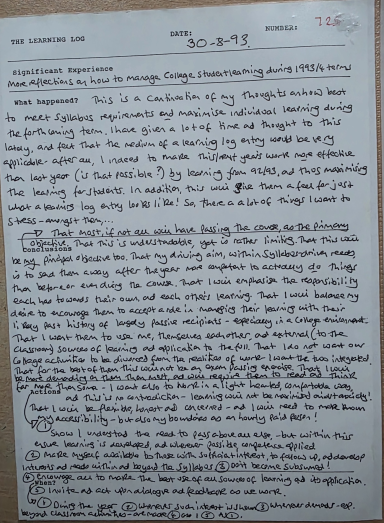 725
THE LEARNING LOG DATE: 30-8-93. NUMBER:
Significant Experience
More reflections on how to manage College student learning during 1993/4 terms
What happened? This is a continuation of my thoughts on how best
to meet Syllabus requirements and maximise individual learning during
the forthcoming term. I have given a lot of time and thought to this
lately, and feel that the medium of a learning log entry would be very
applicable - after all, I need to make this next year's work more effective
than last year (is that possible?) by learning from 92/93, and thus maximising
the learning for students. In addition, this will give them a feel for just
what a learning log entry looks like! So, there are a lot of things I want to
stress - amongst them...
That most, if not all will have passing the course, as the primary
objective. That this is understandable, yet is rather limiting. That this will
Conclusions
be my principal objective too. That my driving aim, within Syllabus driven needs,
is to send them away after the year more competent to actually do things
than before or even during the course. That I will emphasise the responsibility
each has towards their own and each others learning. That I will balance my
desire to encourage them to accept a role in managing their learning with their
likely past history of largely passive recipients - especially, in a College environment.
That I want them to use me, themselves, each other, and external (to the
Classroom) sources of learning and application to the full. That I do not want our
College activities to be divorced from the realities of work - I want the two integrated.
That for the best of them this will not be an exam passing exercise. That I will
be more demanding on them than most, and will require them to read and think
far more than some. I want also to work in a light hearted, comfortable way,
Actions
and this is no contradiction - learning will not be maximised autocratically!
That I will be flexible, honest and concerned - and I will need to make known
my accessibility - but also my boundaries as an hourly paid person!
Show I understand the need to pass above all else - but within this
ensure learning is developed, and wherever possible, workplace applied
(2) Make myself available to those with sufficient interest, to follow up, and develop
interests and needs within and beyond the Syllabus (3) Don't become subsumed!
(4) Encourage all to make the best use of all sources of learning and its application.
When?
(5) Invite and act upon dialogue and feedback as we work.
(1) During the year (2) Whenever such interest is shown (3) whenever demands - esp.
beyond classroom activities - are made (4) (5)